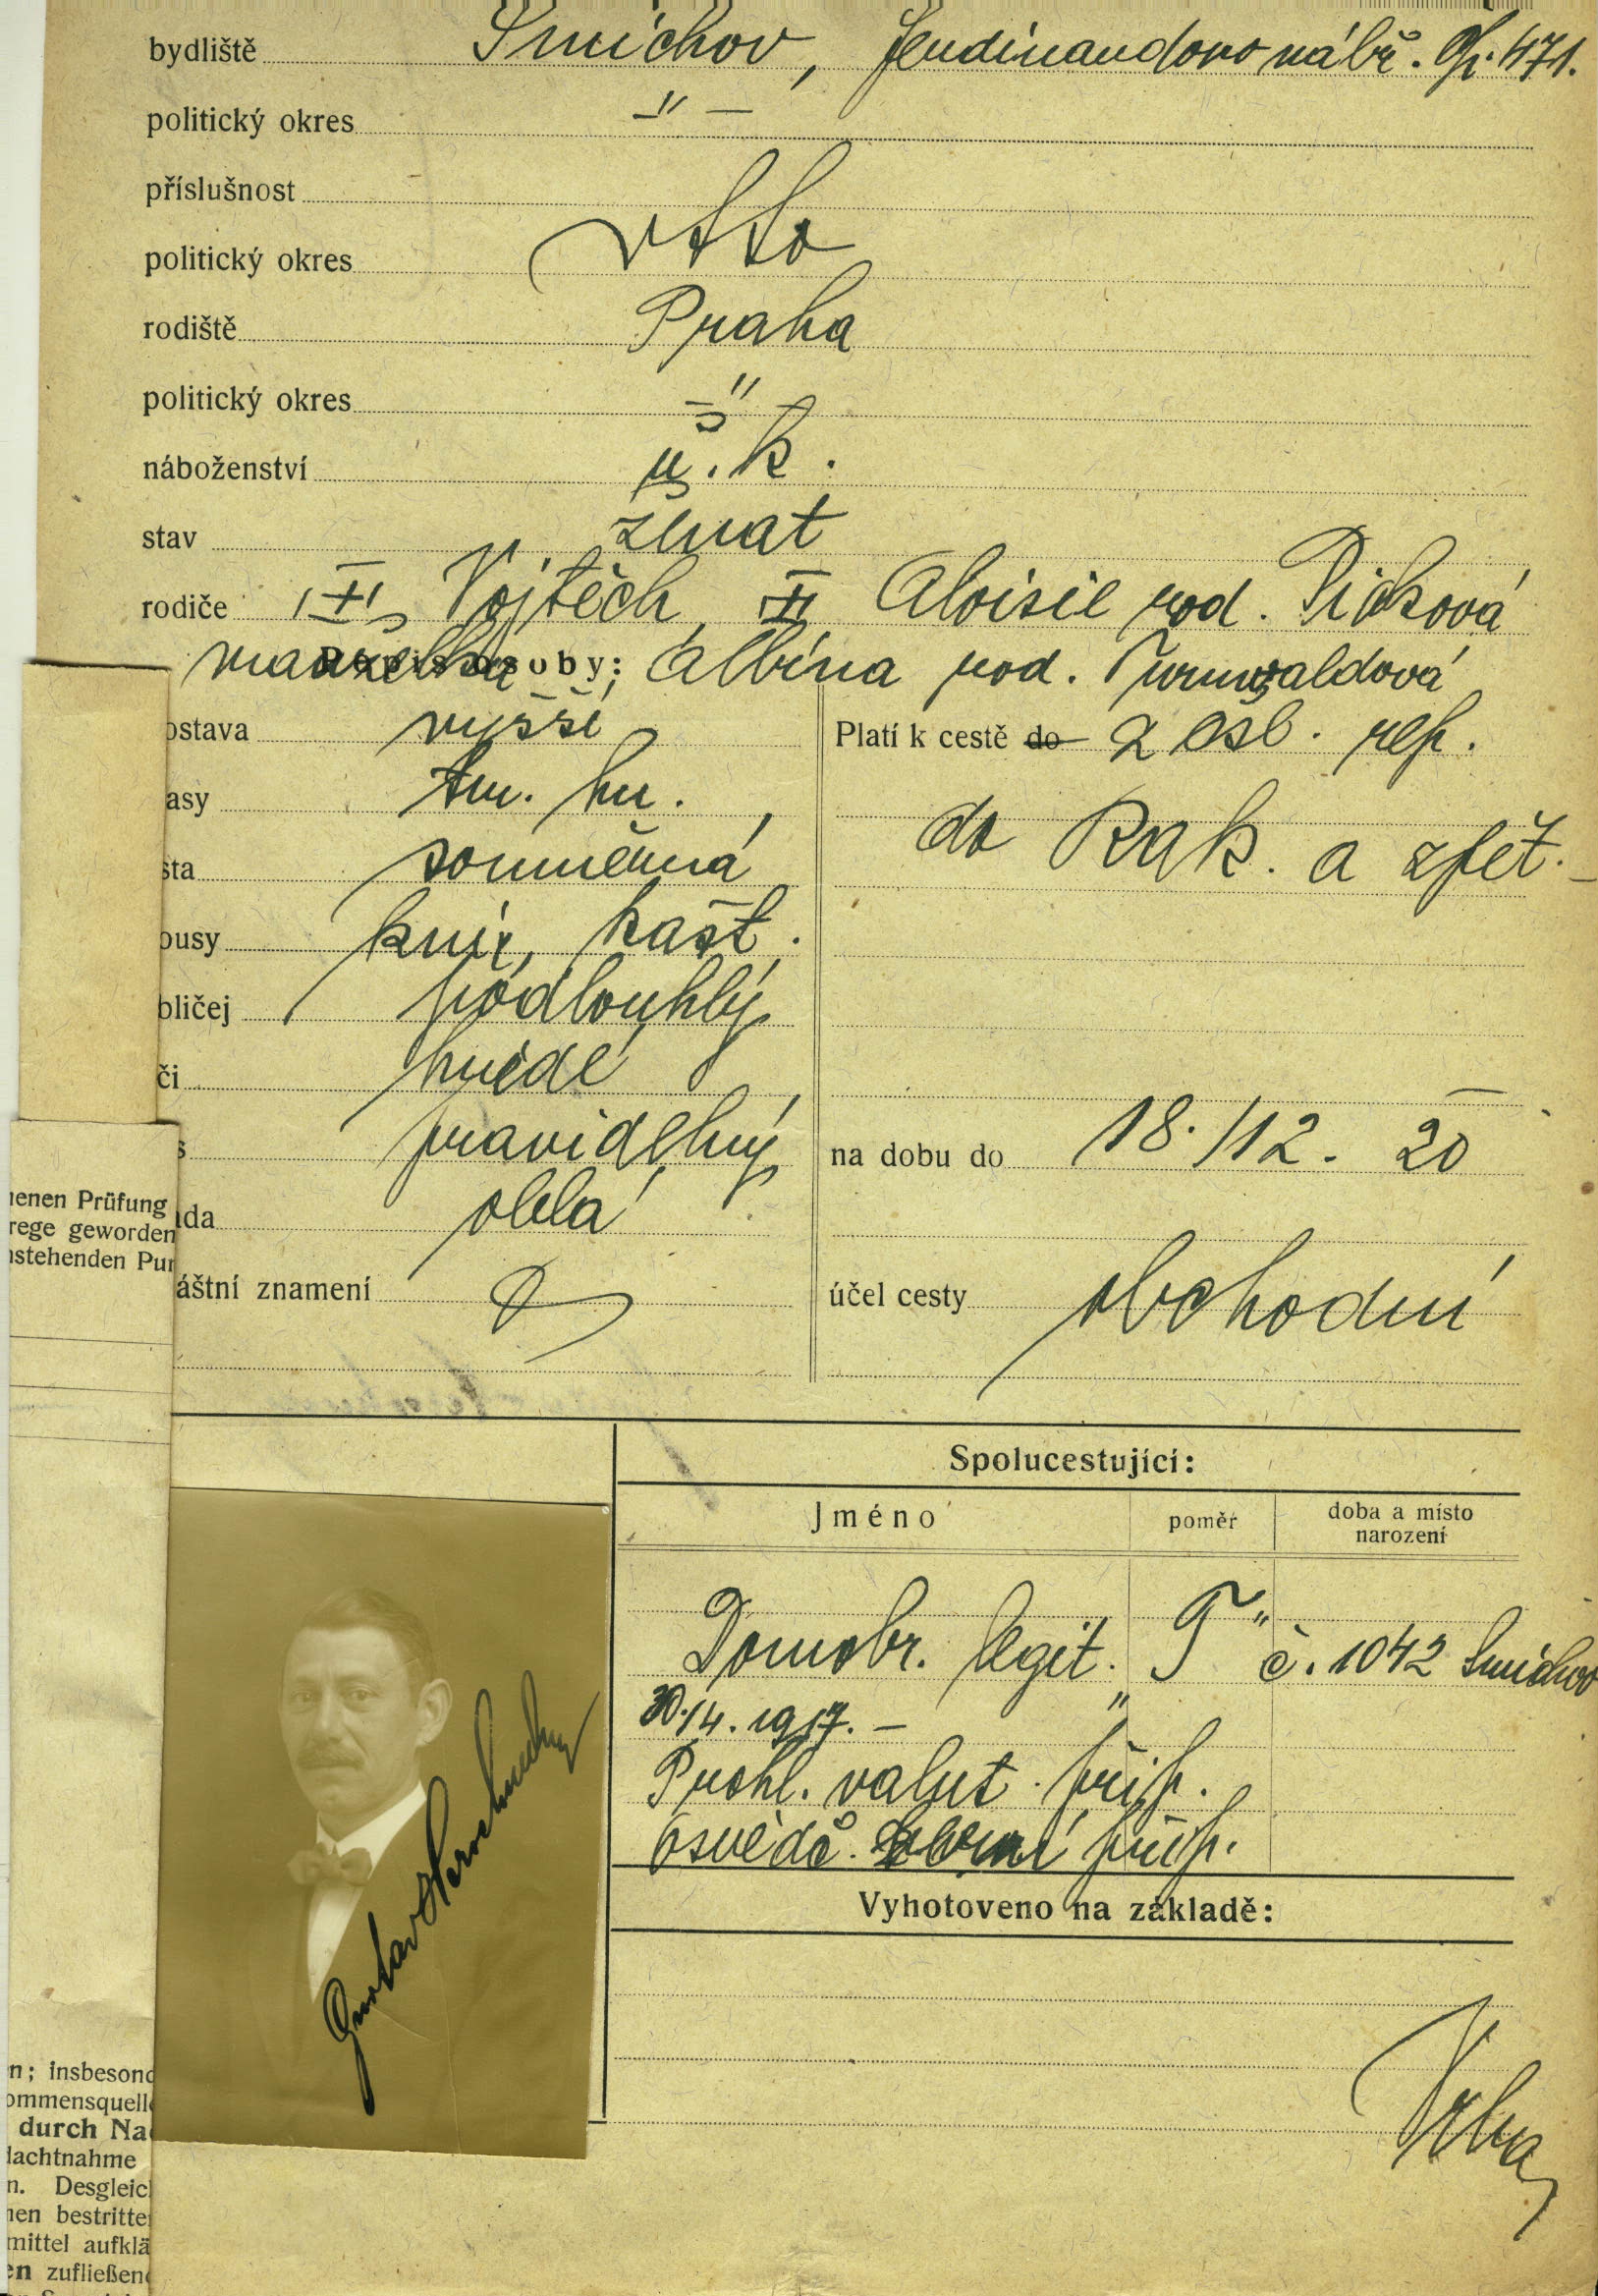 bydliště Smíchov, Ferdinandovo nábř. čp. 471.
politický okres –"–
příslušnost
politický okres
rodiště Praha
politický okres –"–
náboženství ř. k.
stav ženat
rodiče Vojtěch, Aloisie rod. Picková
manželka Popis osoby: Albina rod.
ostava vyšší
asy tm. hn.
sta souměrná
ousy knír, kašt.
bličej podlouhlý
či hnědé
s pravidelný
ada oblá
áštní znamení
Platí k cestě do z čsl. rep.
do Rak. a zpět. –
na dobu do 18./12. 20
účel cesty obchodní
Spolucestující:
Jméno poměr doba a místo narození
Domobr. legit. "T" č. 1042 Smíchov
30./4. 1917. –
Prohl. valut. přip.
Osvědč. přip.
Vyhotoveno na základě:
Vrba
Gustav
nenen Prüfung
rege geworden
nstehenden Pun
n; insbesond
ommensquelle
durch Na
dachtnahme
n. Desgleich
nen bestritte
mittel aufklä
en zufließend